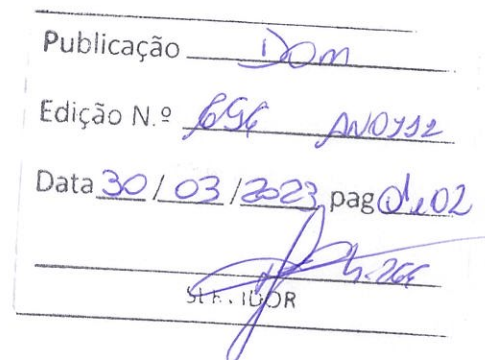 Publicação DOM
Edição N.º 696 ANO 112
Data 30/03/2023 pag 01.02
SERVIDOR